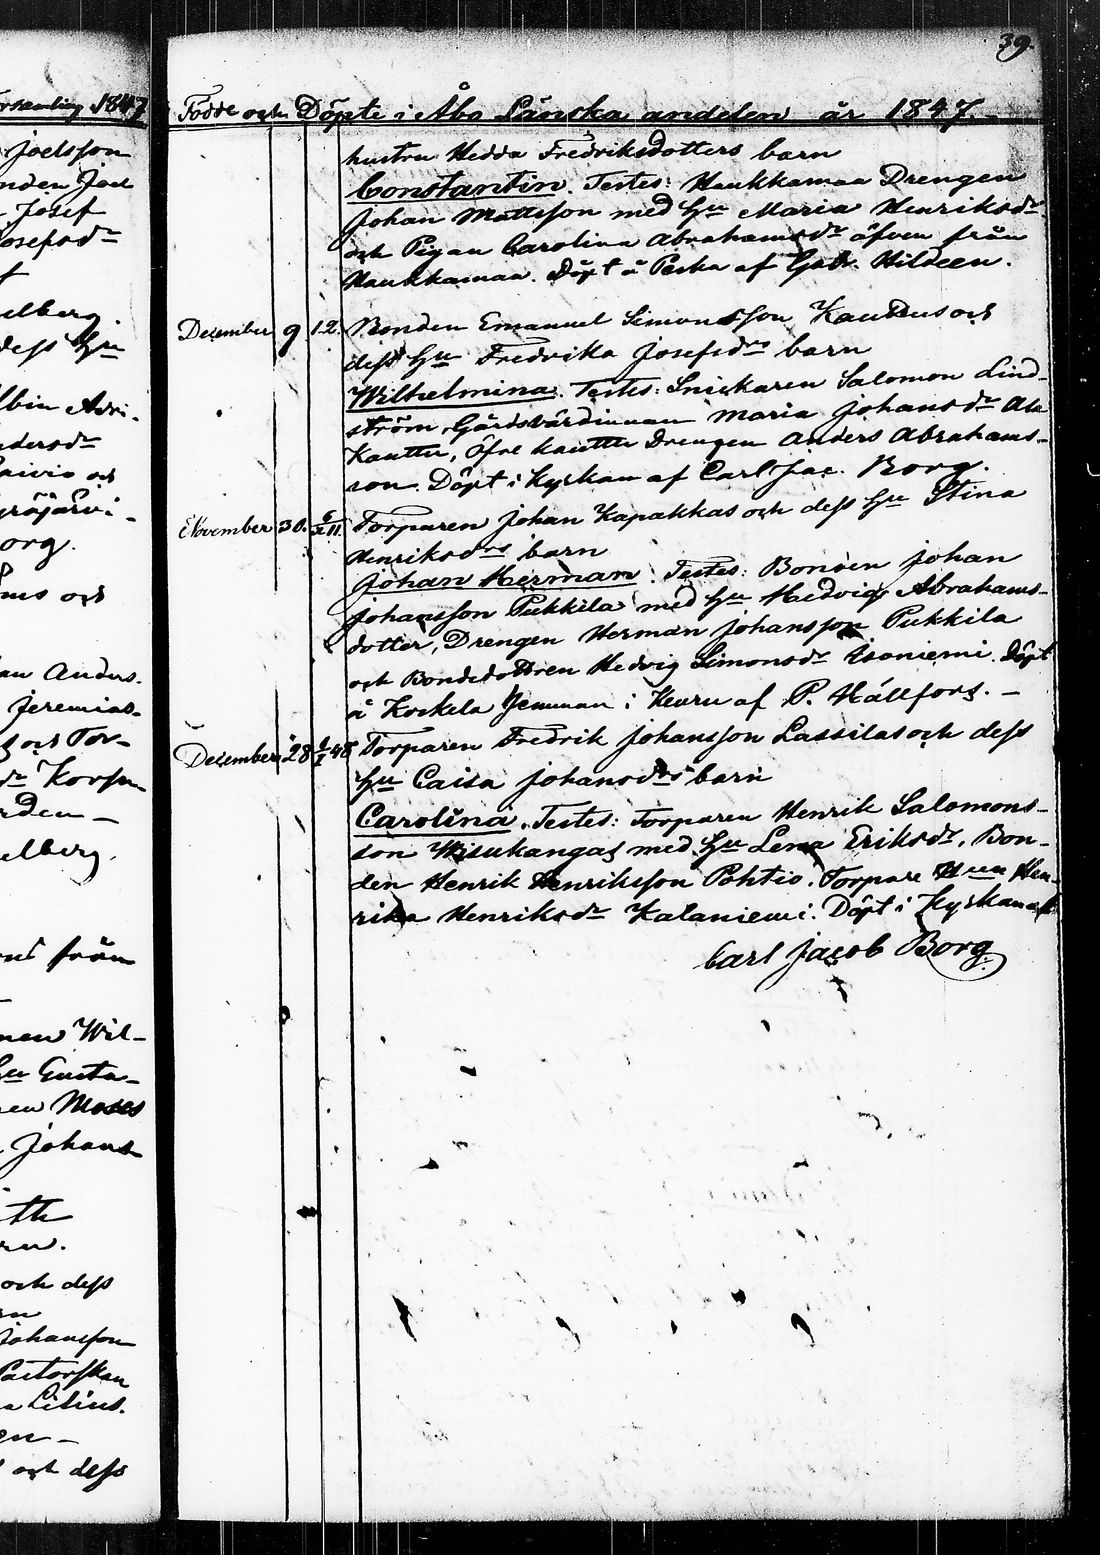 39.
Födde och Döpte i Åbo Länska andelen år 1847.
hustru Hedda Fredriksdotters barn
Constantin. Testes: Haukkamaa Drengen
Johan Mattsson med Hu Maria Henriksdr
och Pigan Carolina Abrahamsdr äfven från
Haukkamaa. Döpt å Peska af Hildeen.
December 9 12. Bonden Emanuel Simonsson Kauttus och
dess Hu Fredrika Josefsdrs barn
Wilhelmina. Testes: Snickaren Salomon Lind-
ström, Gårdsvärdinnan Maria Johansdr Ala
Kauttu, Öfre Kauttu Drengen Anders Abrahams-
son. Döpt i Kyrkan af Carl Jac. Borg.
November 30. Torparen Johan Kapakkas och dess Hu Stina
Henriksdrs barn
Johan Herman. Testes: Bonden Johan
Johansson Pukkila med Hu Hedvig Abrahams-
dotter, Drengen Herman Johansson Pukkila
och Bondedottren Hedvig Simonsdr Isoniemi. Döpt
å Kockela i af P. Hällfors. —
December 28 48 Torparen Fredrik Johansson Lassilas och dess
Hu Caisa Johansdrs barn
Carolina. Testes: Torparen Henrik Salomons-
son Wisukangas med Hu Lena Eriksdr. Bon-
den Henrik Henriksson Pohtio. Torpare Hen-
rika Henriksdr Kalaniemi. Döpt i Kyrkan af
Carl Jacob Borg.
1847
Joelsson
Josef
Josefsdr
elberg.
dess Hu
Adri-
ndersdr
och
org.
och
Anders.
Jeremias-
och Tor-
rden —
elberg.
från
Wil-
Hu Gusta-
Moses
Johans
och dess
Johansson
Pastorskan
Lilius.
och dess